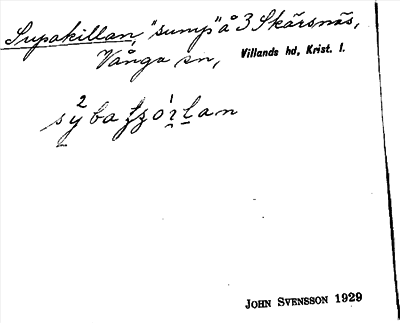 Supakillan, "sump" å 3 Skärsnäs,
Vånga sn, Villands hd, Krist. l.
JOHN SVENSSON 1929